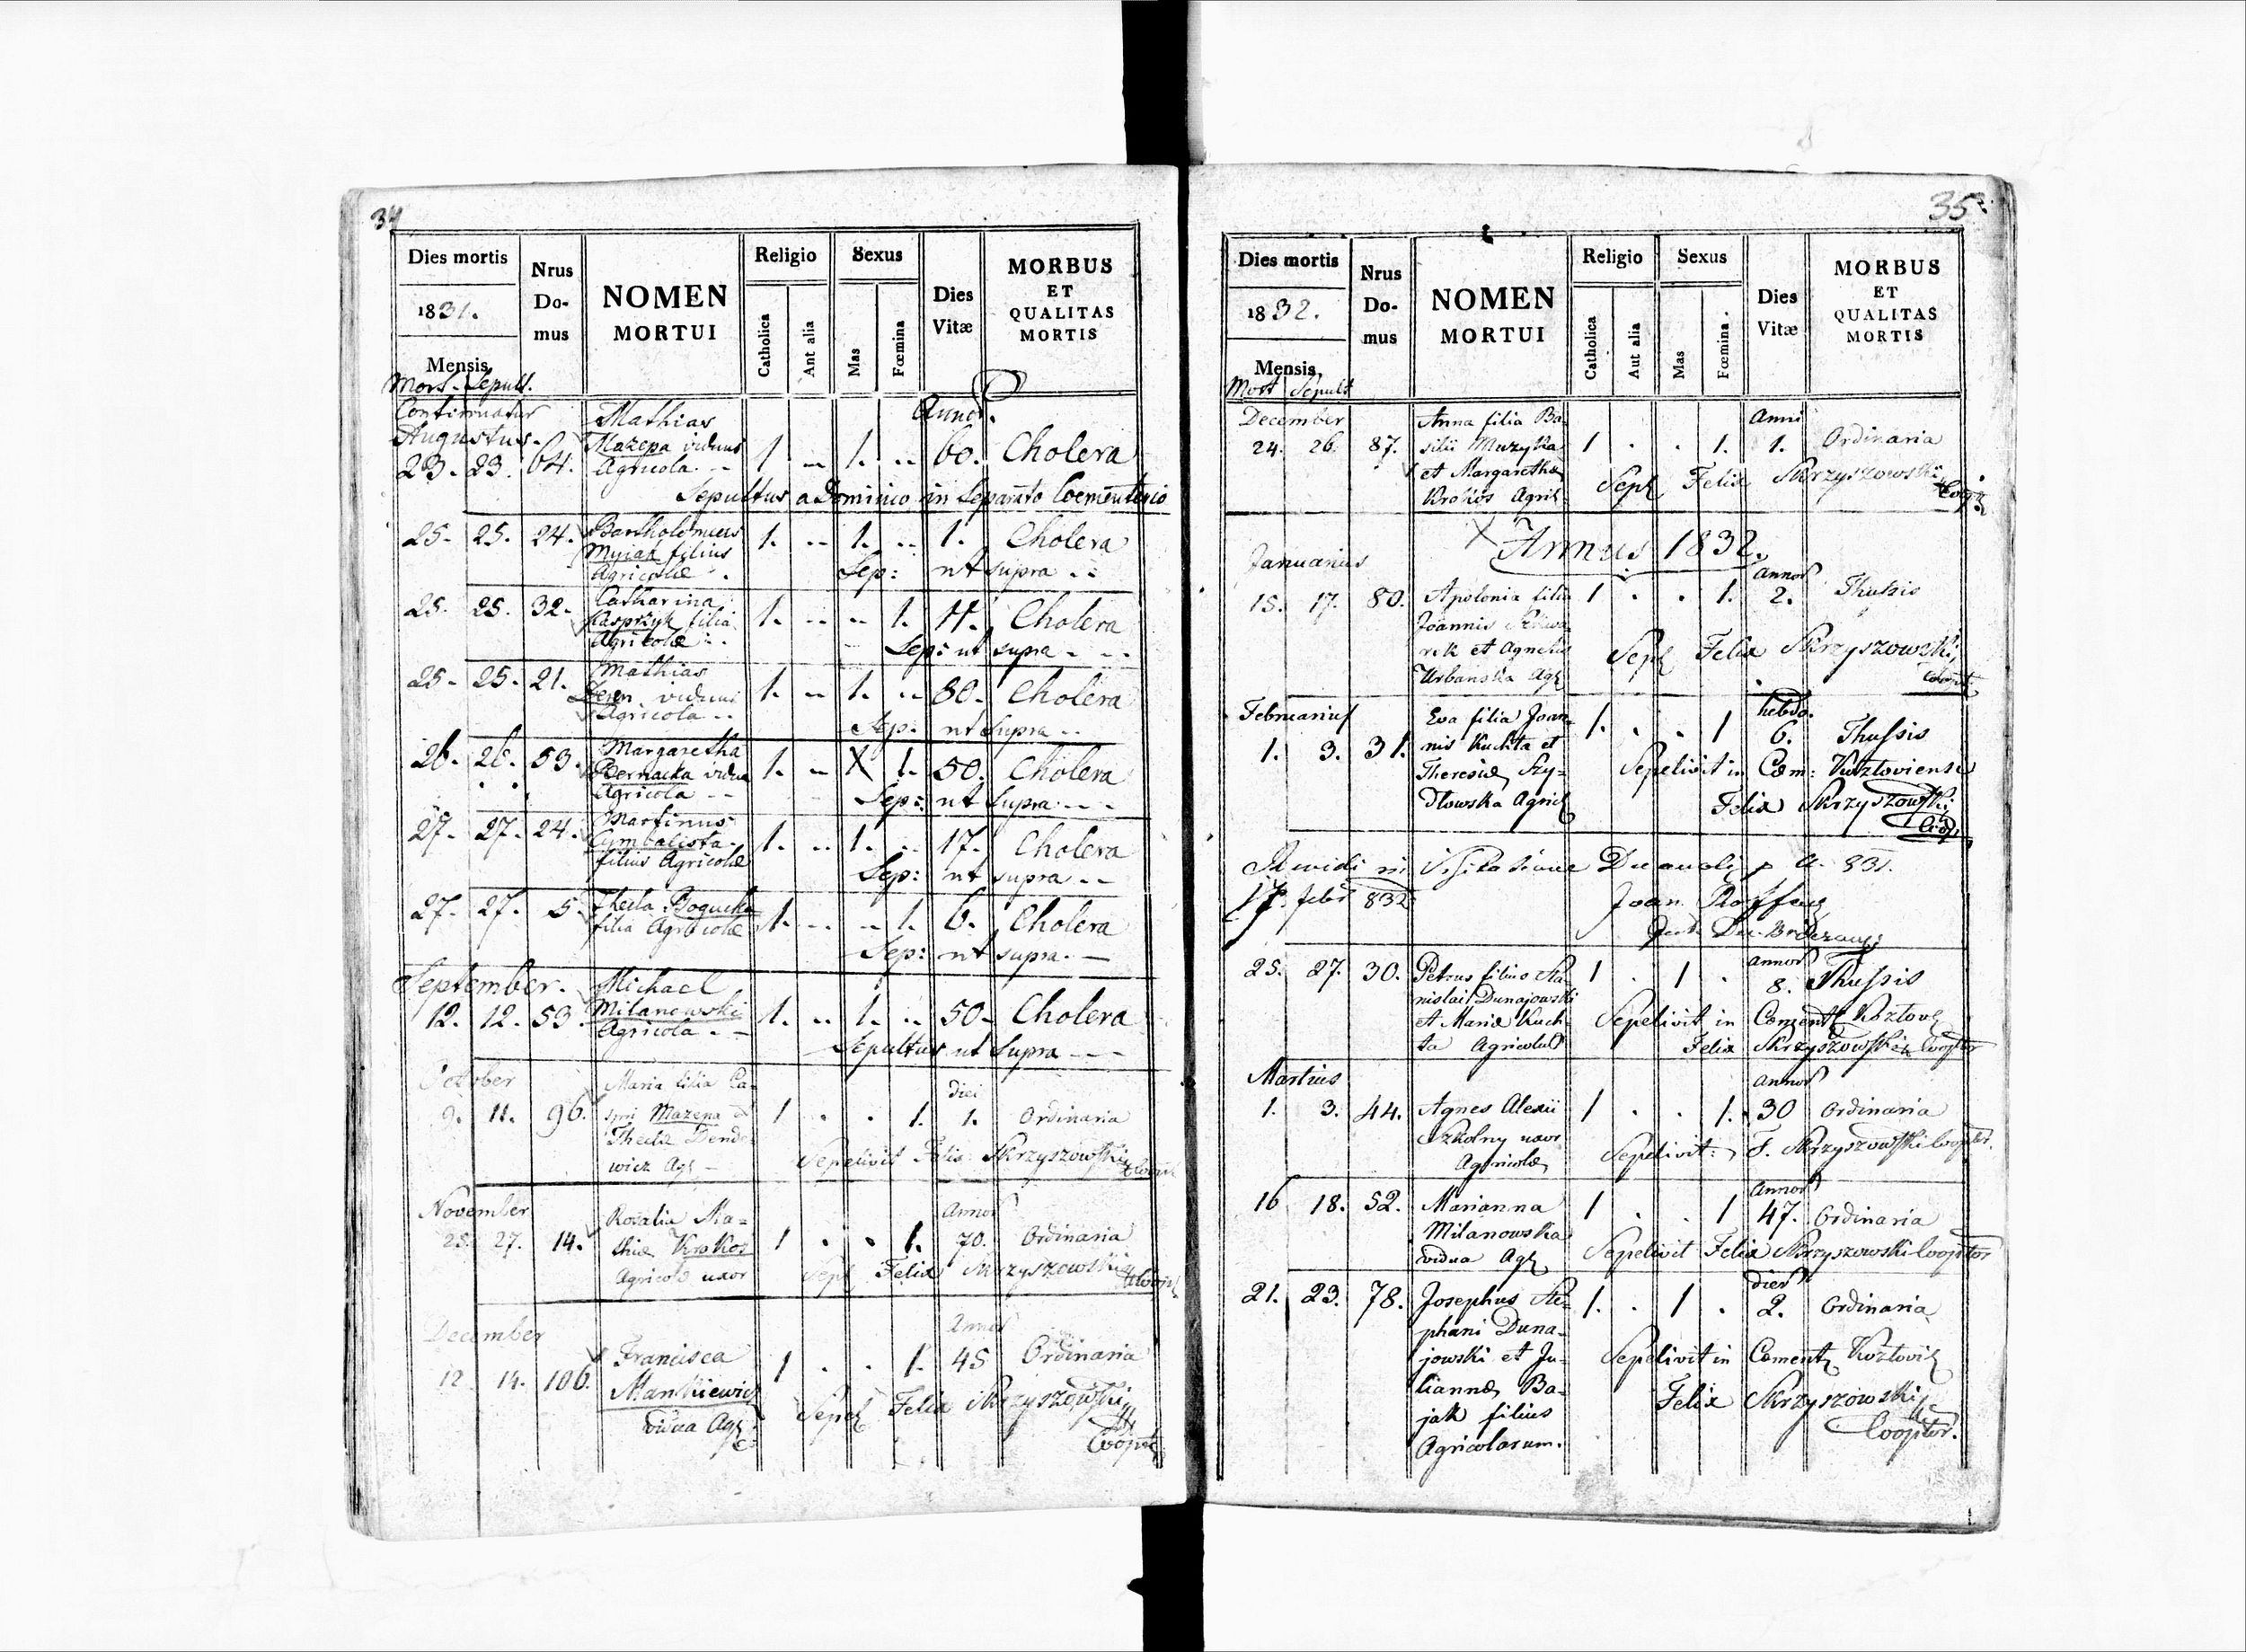 34
Dies mortis
Nrus Domus
NOMEN MORTUI
Religio
Sexus
Dies Vitæ
MORBUS ET QUALITAS MORTIS
1831.
Catholica
Ant alia
Mas
Fœmina
Mensis
Mort. Sepult.
Continuatur
Augustus. Mathias Annor.
23. 23. 64. Mazepa viduus 1 1. 60. Cholera
Agricola
Sepultus a Dominico in Separato Coementerio
25. 25. 24. Bartholomeus 1. 1. 1. Cholera
Myiak filius
Agricolæ Sep: ut supra
25. 25. 32. Catharina 1. 1. 11. Cholera
Kasprzyk filia
Agricolæ Sep: ut supra
25. 25. 21. Mathias 1. 1. 80. Cholera
viduus
Agricola Sep: ut supra
26. 26. 53. Margaretha 1. X 1. 50. Cholera
Biernacka vidua
Agricola Sep: ut supra
27. 27. 24. Martinus 1. 1. 17. Cholera
Cymbalista
filius Agricolæ Sep: ut supra
27. 27. 5. Thecla Bogucka 1. 1. 6. Cholera
filia Agricolæ
Sep: ut supra.
September. Michael
12. 12. 53. Milanowski 1. 1. 50. Cholera
Agricola
Sepultus ut supra
October Maria filia Ca- diei
9. 11. 96. spri Mazepa et 1 1. 1. Ordinaria
Thecla Dendo
wicz Agr
Sepelivit Felix Skrzyszowski
November Rosalia Ma- Annor
25. 27. 14. thiæ Krokos 1 1. 70. Ordinaria
Agricolæ uxor Sepel Felix Skrzyszowski
December Annor
12. 14. 106. Francisca 1 1. 45 Ordinaria
Mankiewicz
vidua Agr Sepel Felix Skrzyszowski
Coopt
35
Dies mortis
Nrus Domus
NOMEN MORTUI
Religio
Sexus
Dies Vitæ
MORBUS ET QUALITAS MORTIS
1832.
Catholica
Aut alia
Mas
Fœmina.
Mensis
Mort Sepult
December Anna filia Ba- Anni
24. 26. 87. silii Muzyka 1 1. 1. Ordinaria
et Margaretha
Krokos Agric Sepel Felix Skrzyszowski
X Annus 1832.
Januarius Annor
15. 17. 80. Apolonia filia 1 1. 2. Thussis
Joannis
rek et Agnetis
Urbanska Agr Sepel Felix Skrzyszowski
Coopt
Februarius Eva filia Joan- hebdo.
1. 3. 31. nis Kuchta et 1. 1 6. Thussis
Theresiæ Szy- Sepelivit in Cœm: Koztoviensi
dłowska Agric Felix Skrzyszowski
17. Febr 832
25. 27. 30. Petrus filius Sta- 1 1 annor 8. Thussis
nislai Dunajowski
et Mariæ Kuch- Sepelivit in Cœment Koztov
ta Agricolæ Felix Skrzyszowski Cooptor
Martius annor
1. 3. 44. Agnes Alexii 1 1. 30 Ordinaria
Szkolny uxor
Agricolæ Sepelivit: F. Skrzyszowski Cooptor.
16 18. 52. Marianna 1 1 Annor 47. Ordinaria
Milanowska
vidua Agr Sepelivit Felix Skrzyszowski Cooptor
21. 23. 78. Josephus Ste- 1. 1 dier 2. Ordinaria
phani Duna-
jowski et Ju- Sepelivit in Cœment Koztovi
liannæ Ba- Felix Skrzyszowski
jak filius Cooptor.
Agricolarum.